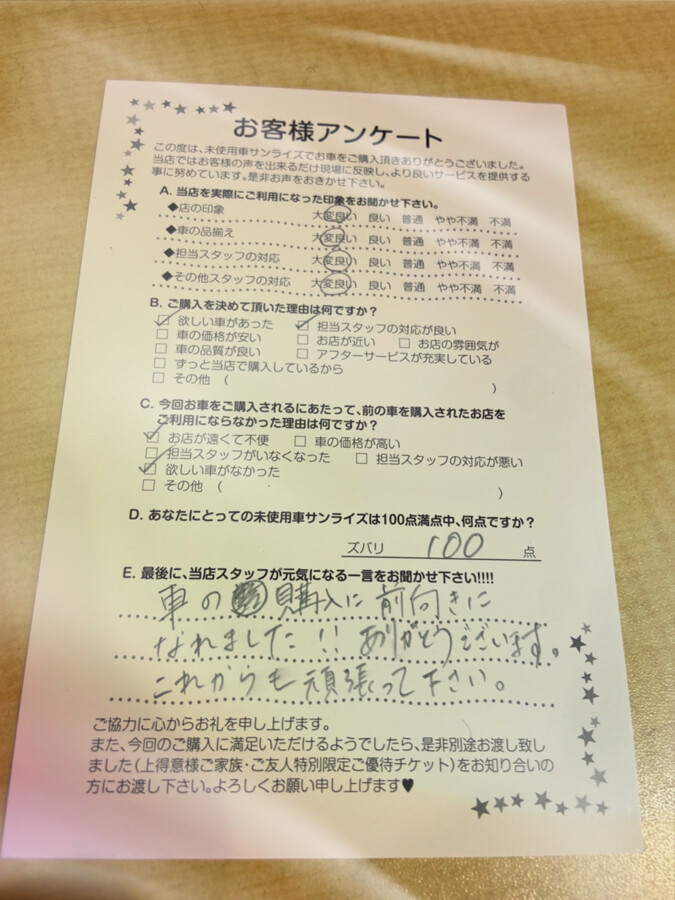 お客様アンケート
この度は、未使用車サンライズでお車をご購入頂きありがとうございました。
当店ではお客様の声を出来るだけ現場に反映し、より良いサービスを提供する
事に努めています。是非お声をおきかせ下さい。
A. 当店を実際にご利用になった印象をお聞かせ下さい。
◆店の印象 大変良い 良い 普通 やや不満 不満
◆車の品揃え 大変良い 良い 普通 やや不満 不満
◆担当スタッフの対応 大変良い 良い 普通 やや不満 不満
◆その他スタッフの対応 大変良い 良い 普通 やや不満 不満
B. ご購入を決めて頂いた理由は何ですか？
☑ 欲しい車があった ☑ 担当スタッフの対応が良い
□ 車の価格が安い □ お店が近い □ お店の雰囲気が
□ 車の品質が良い □ アフターサービスが充実している
□ ずっと当店で購入しているから
□ その他 ( )
C. 今回お車をご購入されるにあたって、前の車を購入されたお店を
ご利用にならなかった理由は何ですか？
☑ お店が遠くて不便 □ 車の価格が高い
□ 担当スタッフがいなくなった □ 担当スタッフの対応が悪い
☑ 欲しい車がなかった
□ その他 ( )
D. あなたにとっての未使用車サンライズは100点満点中、何点ですか？
ズバリ 100 点
E. 最後に、当店スタッフが元気になる一言をお聞かせ下さい!!!!
車の購入に前向きに
なれました!! ありがとうございます。
これからも頑張って下さい。
ご協力に心からお礼を申し上げます。
また、今回のご購入に満足いただけるようでしたら、是非別途お渡し致し
ました(上得意様ご家族・ご友人特別限定ご優待チケット)をお知り合いの
方にお渡し下さい。よろしくお願い申し上げます♥